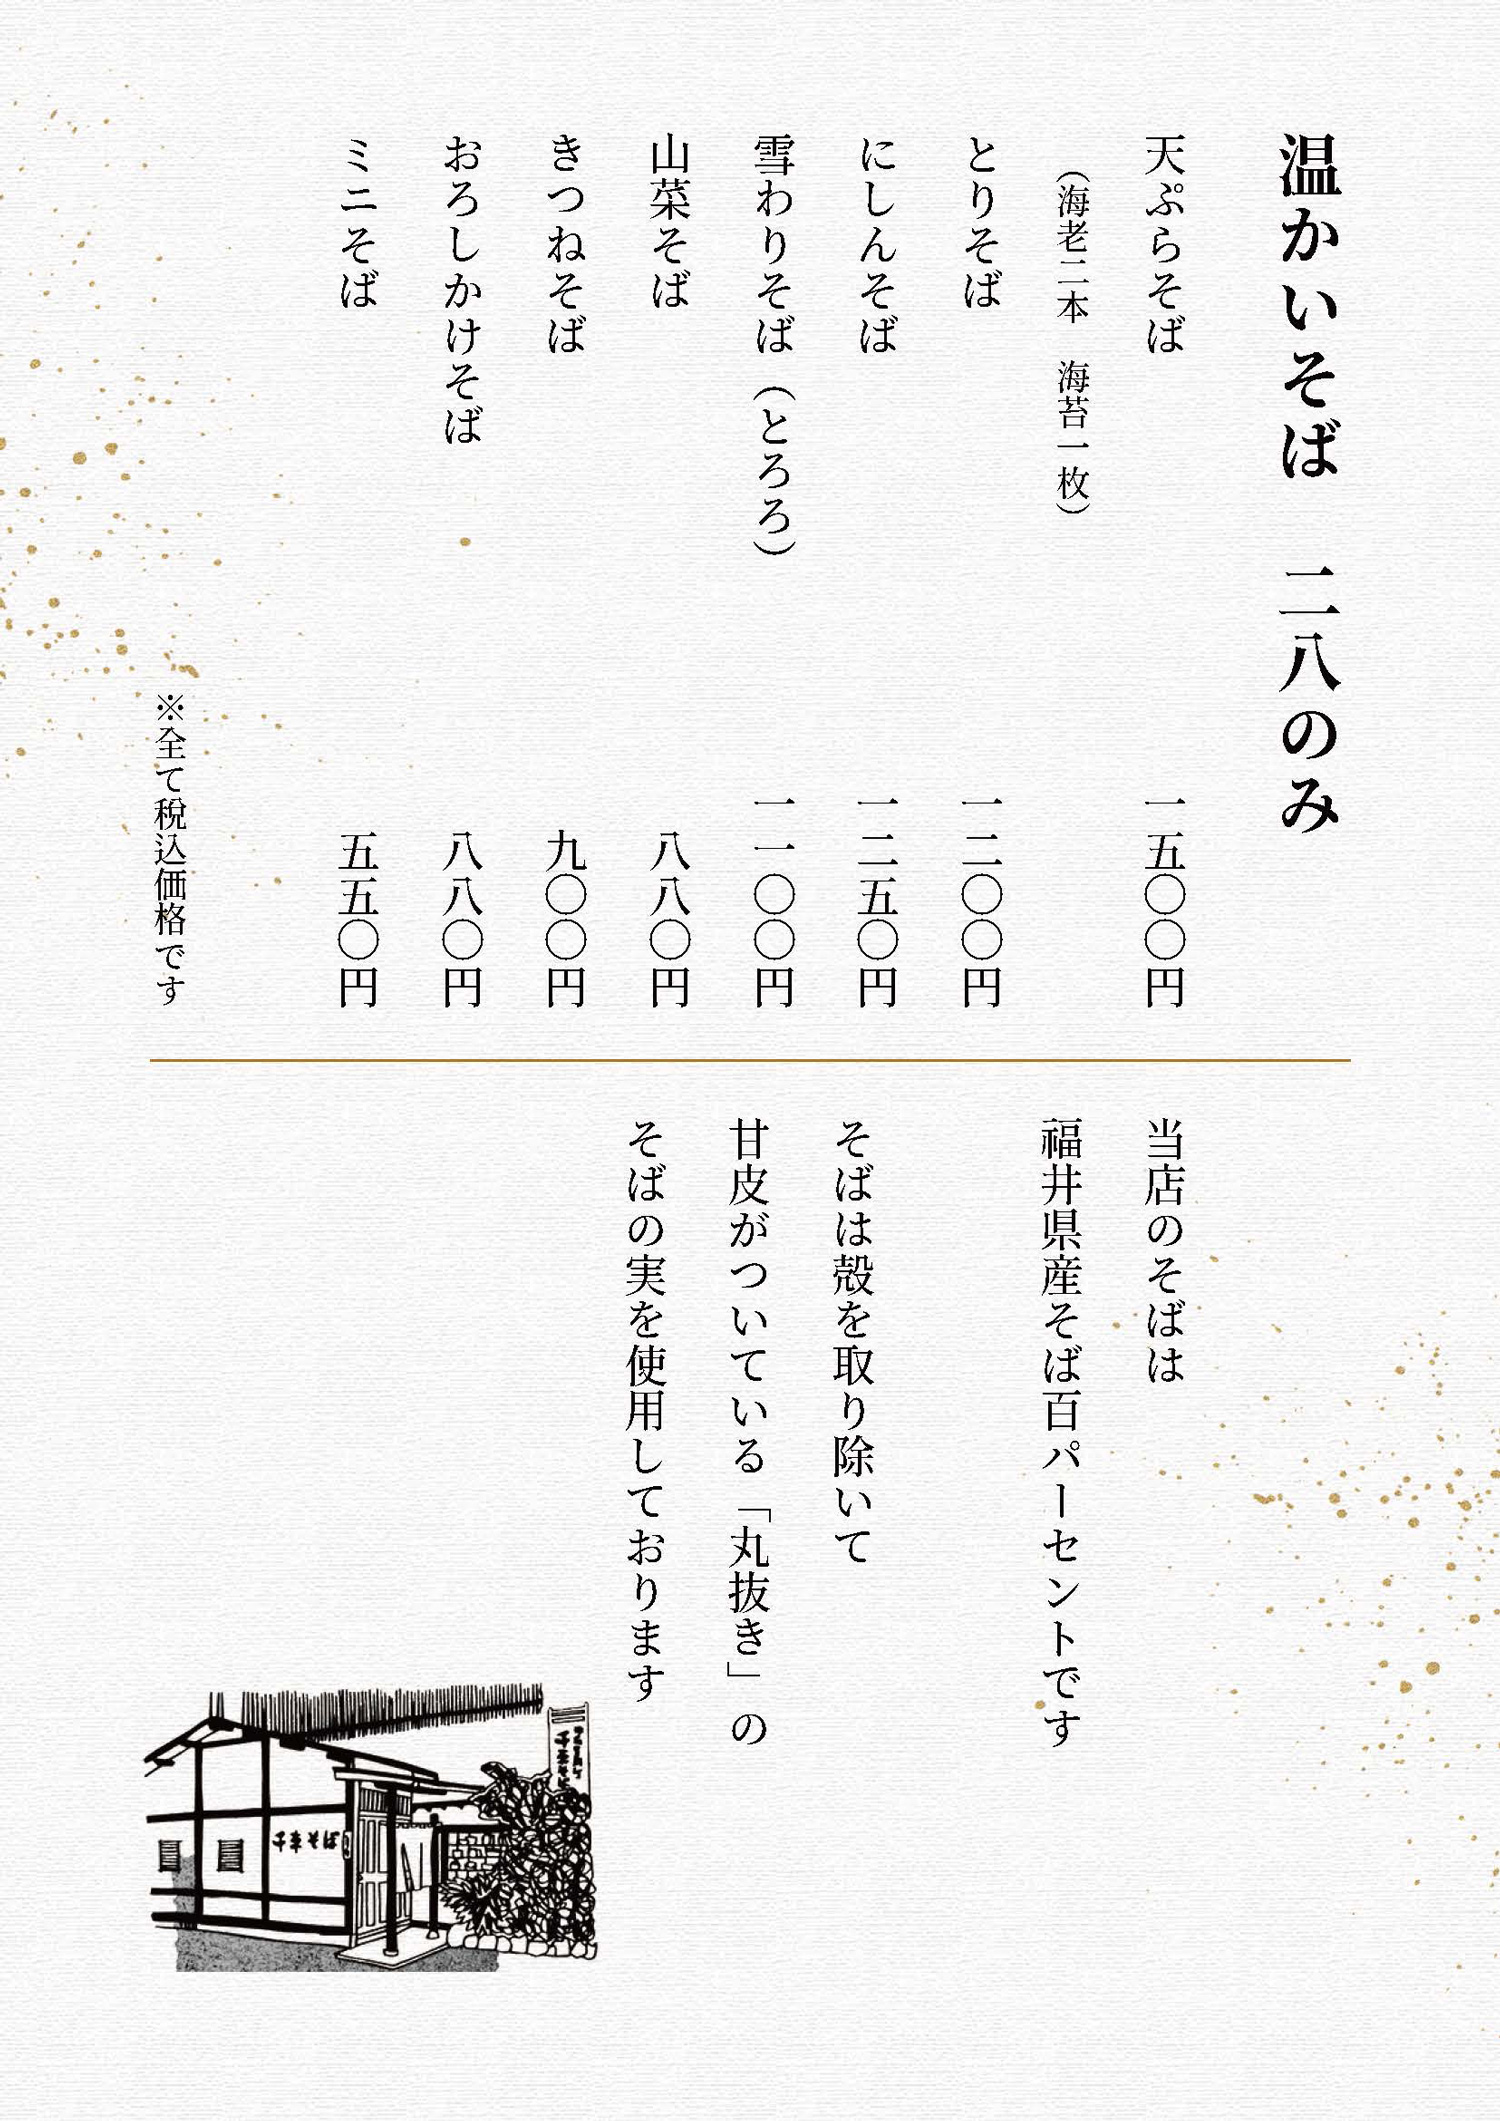 温かいそば　二八のみ
天ぷらそば　一五〇〇円
（海老二本　海苔一枚）
とりそば　一二〇〇円
にしんそば　一二五〇円
雪わりそば（とろろ）　一一〇〇円
山菜そば　八八〇円
きつねそば　九〇〇円
おろしかけそば　八八〇円
ミニそば　五五〇円
※全て税込価格です
当店のそばは
福井県産そば百パーセントです
そばは殻を取り除いて
甘皮がついている「丸抜き」の
そばの実を使用しております